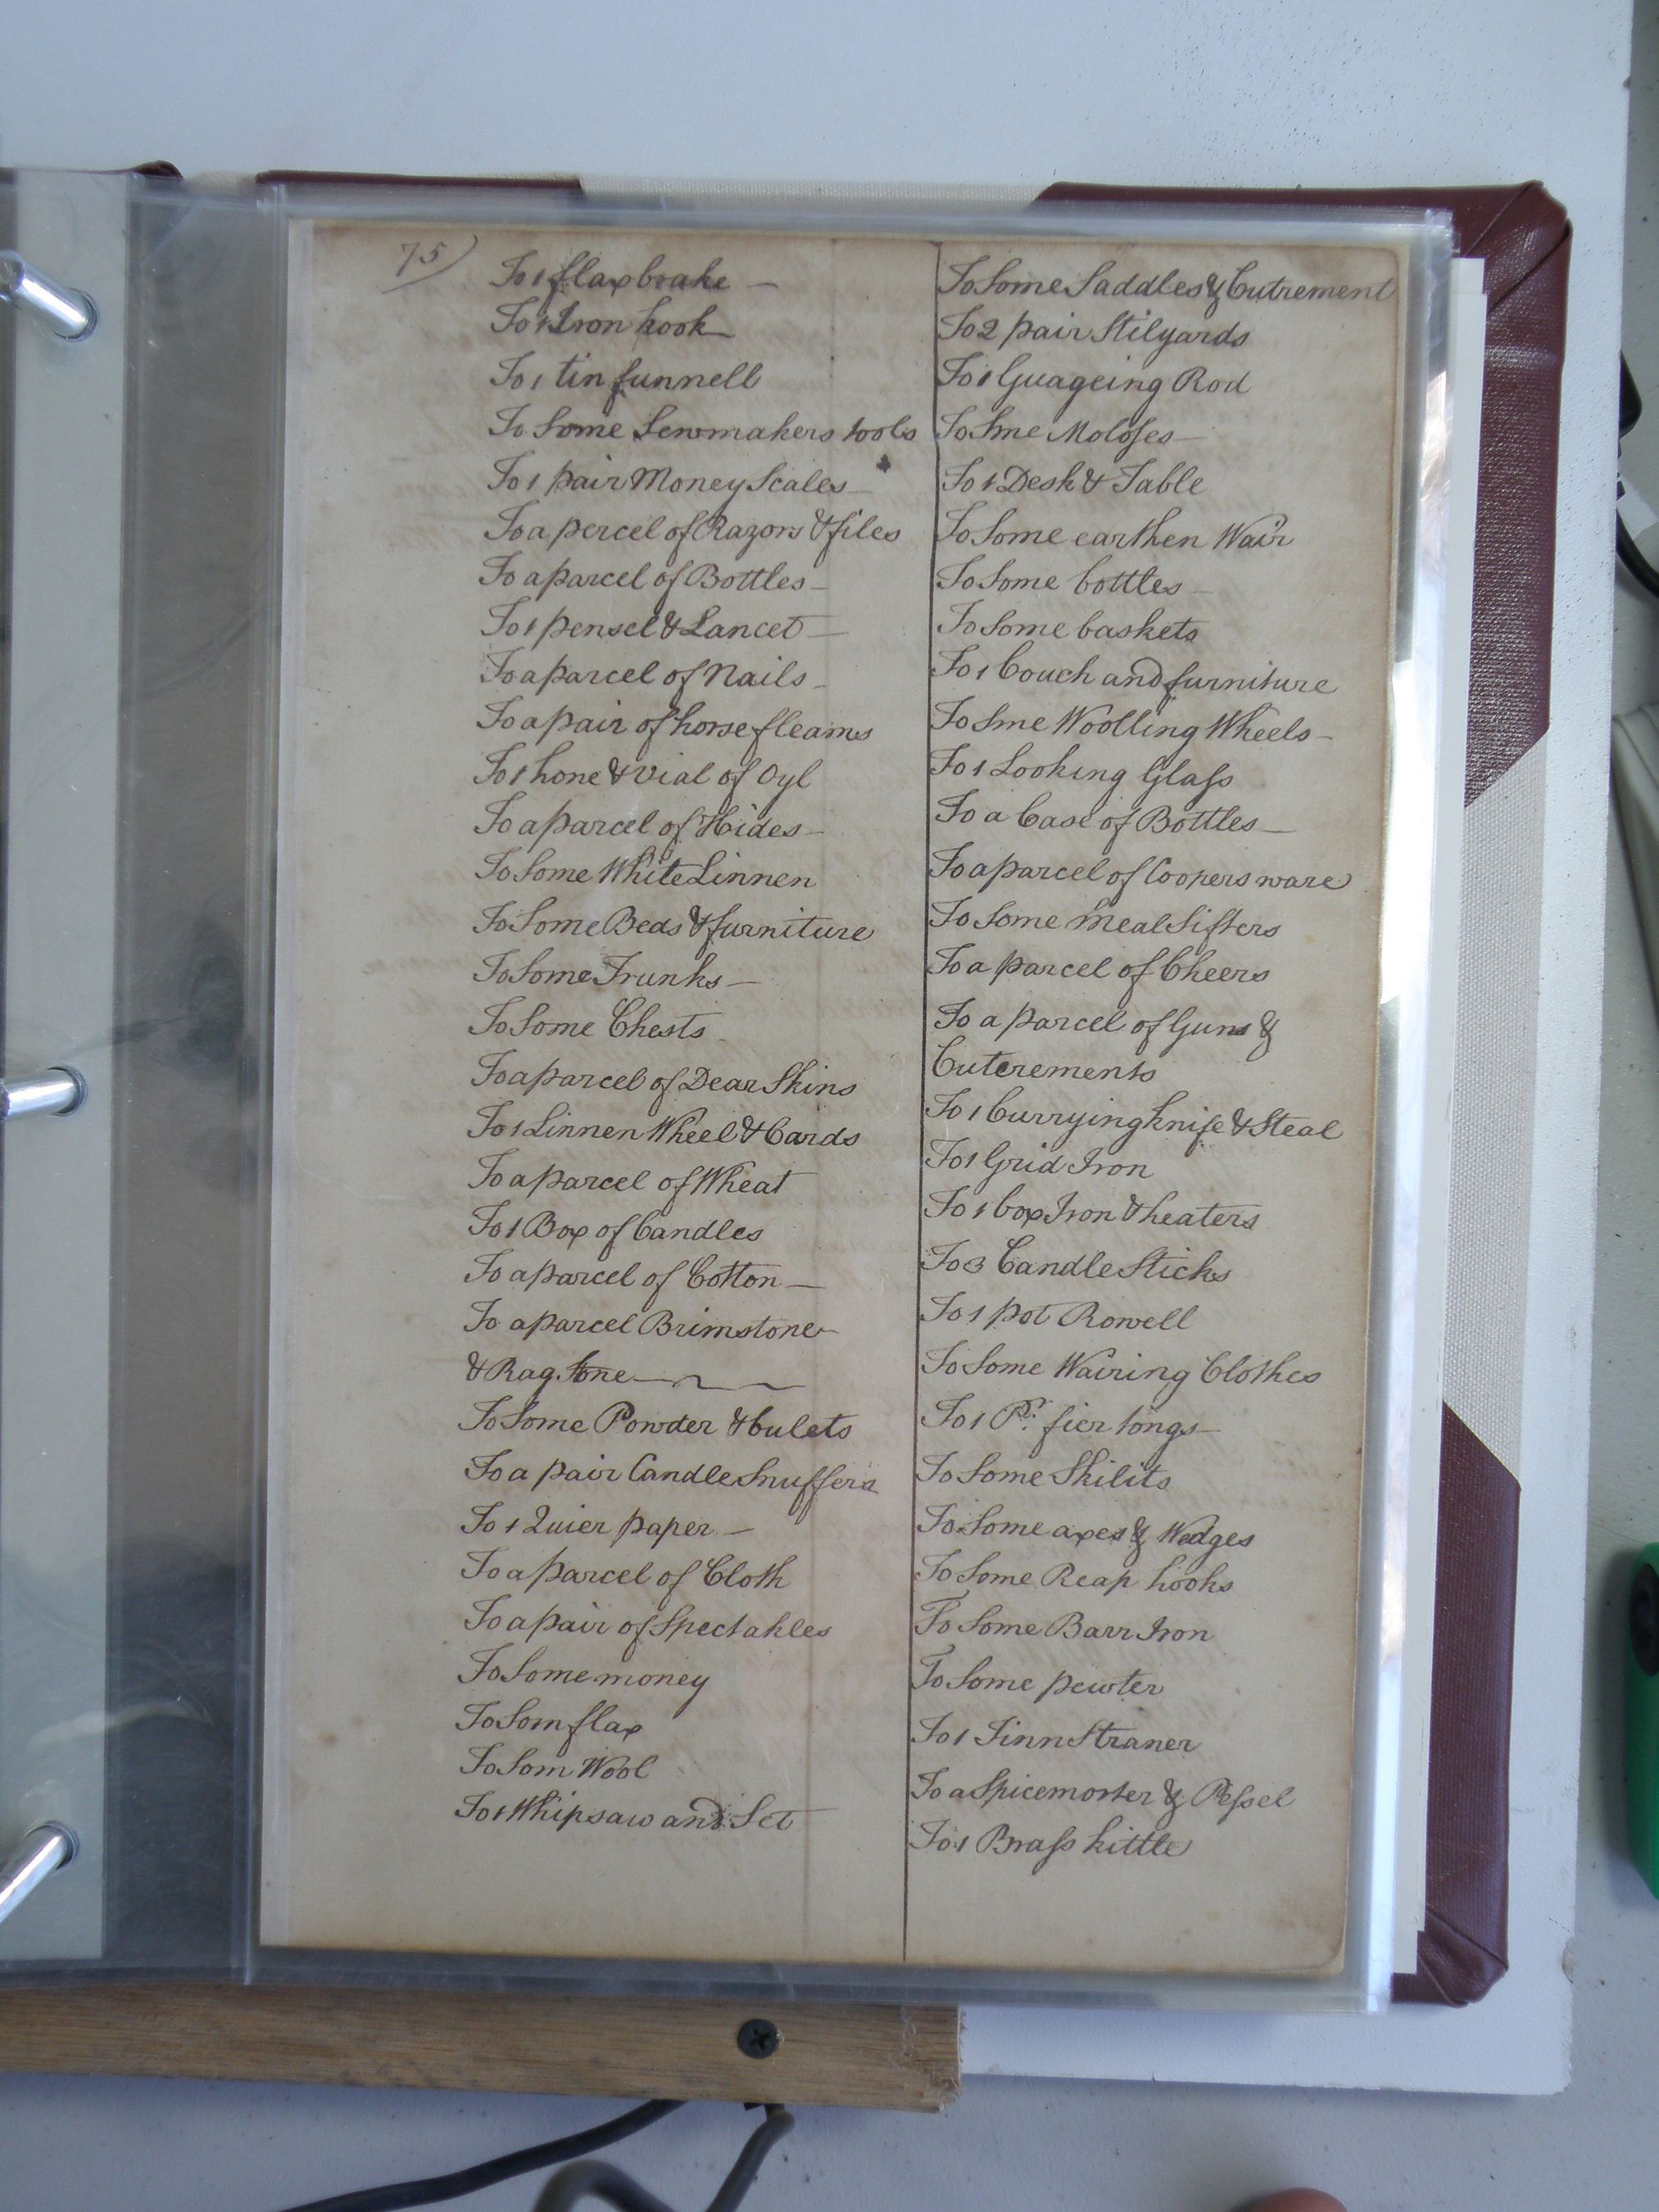 75
To 1 flax brake —
To 1 Iron hook
To 1 tin funnell
To Some Sewmakers tools
To 1 pair Money Scales
To a percel of Razors & files
To a parcel of Bottles
To 1 pensel & Lancet
To a parcel of Nails
To a pair of horse fleams
To 1 hone & vial of Oyl
To a parcel of Hides
To Some White Linnen
To Some Beds & furniture
To Some Trunks —
To Some Chests
To a parcel of Dear Skins
To 1 Linnen Wheel & Cards
To a parcel of Wheat
To 1 Box of Candles
To a parcel of Cotton —
To a parcel Brimstone
& Rag Stone
To Some Powder & bulets
To a pair Candle Snuffers
To 1 Quier paper —
To a parcel of Cloth
To a pair of Spectakles
To Some money
To Som flax
To Som Wool
To 1 Whipsaw and Set
To Some Saddles & Cutrement
To 2 pair Stilyards
To 1 Guageing Rod
To Sme Moloses
To 1 Desk & Table
To Some earthen Wair
To Some bottles
To Some baskets
To 1 Couch and furniture
To Sme Woolling Wheels
To 1 Looking Glass
To a Case of Bottles
To a parcel of Coopers ware
To Some meal Sifters
To a parcel of Cheers
To a parcel of Guns &
Cuterements
To 1 Currying knife & Steal
To 1 Grid Iron
To 1 box Iron & heaters
To 3 Candle Sticks
To 1 pot Rowell
To Some Wairing Clothes
To 1 Pr. fier tongs
To Some Skilits
To Some axes & Wedges
To Some Reap hooks
To Some Barr Iron
To Some pewter
To 1 Tinn Straner
To a Spicemorter & Pessel
To 1 Brass kittle